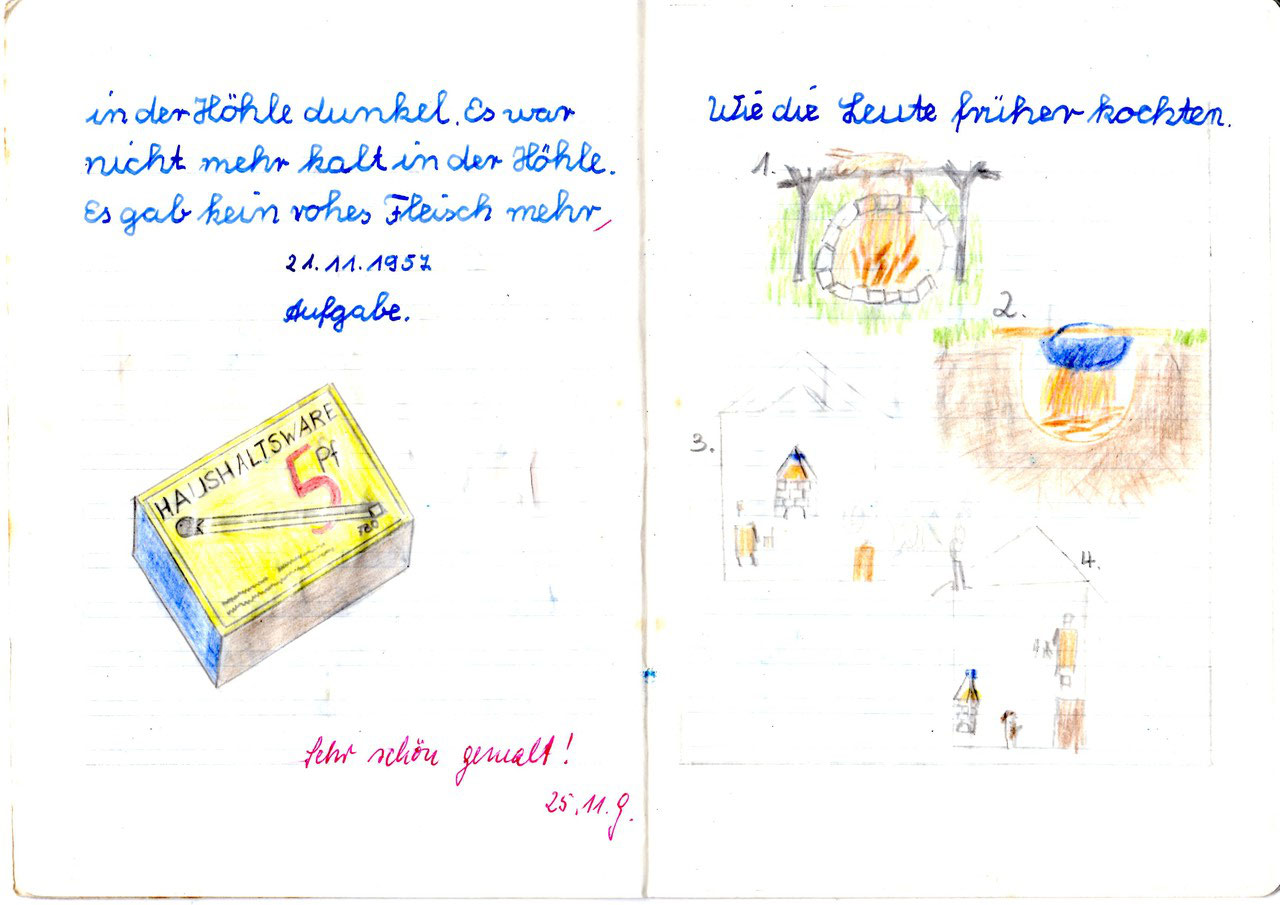 in der Höhle dunkel. Es war
nicht mehr kalt in der Höhle.
Es gab kein rohes Fleisch mehr,
21.11.1957
Aufgabe.
HAUSHALTSWARE
5 Pf
Sehr schön gemalt!
25.11. G.
Wie die Leute früher kochten.
1.
2.
3.
4.